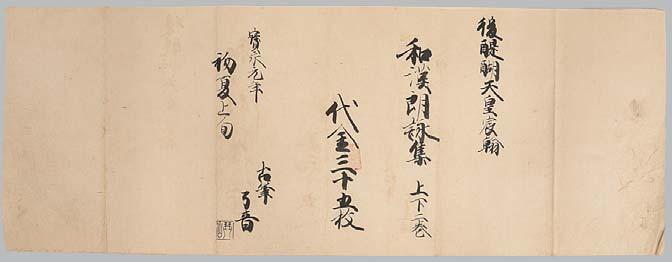 後醍醐天皇宸翰
和漢朗詠集 上下二巻
代金三十五枚
寳永元年
初夏上旬
古筆
了音